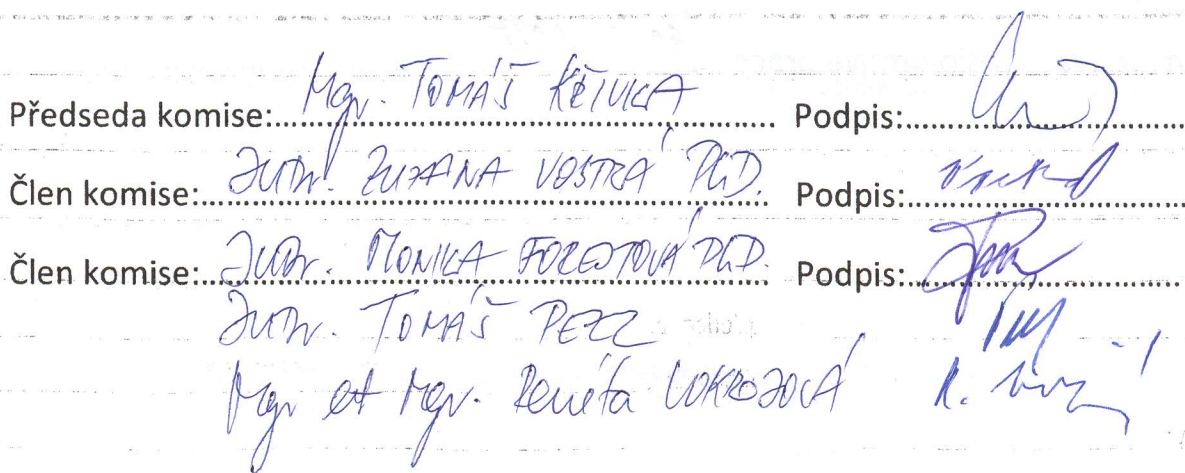 Předseda komise: Mgr. TOMÁŠ KŘIVKA Podpis:
Člen komise: JUDr. ZUZANA VOSTRÁ PhD. Podpis:
Člen komise: JUDr. MONIKA FOREJTOVÁ PhD. Podpis:
JUDr. TOMÁŠ PEZL
Mgr et Mgr. Renáta VOKROJOVÁ